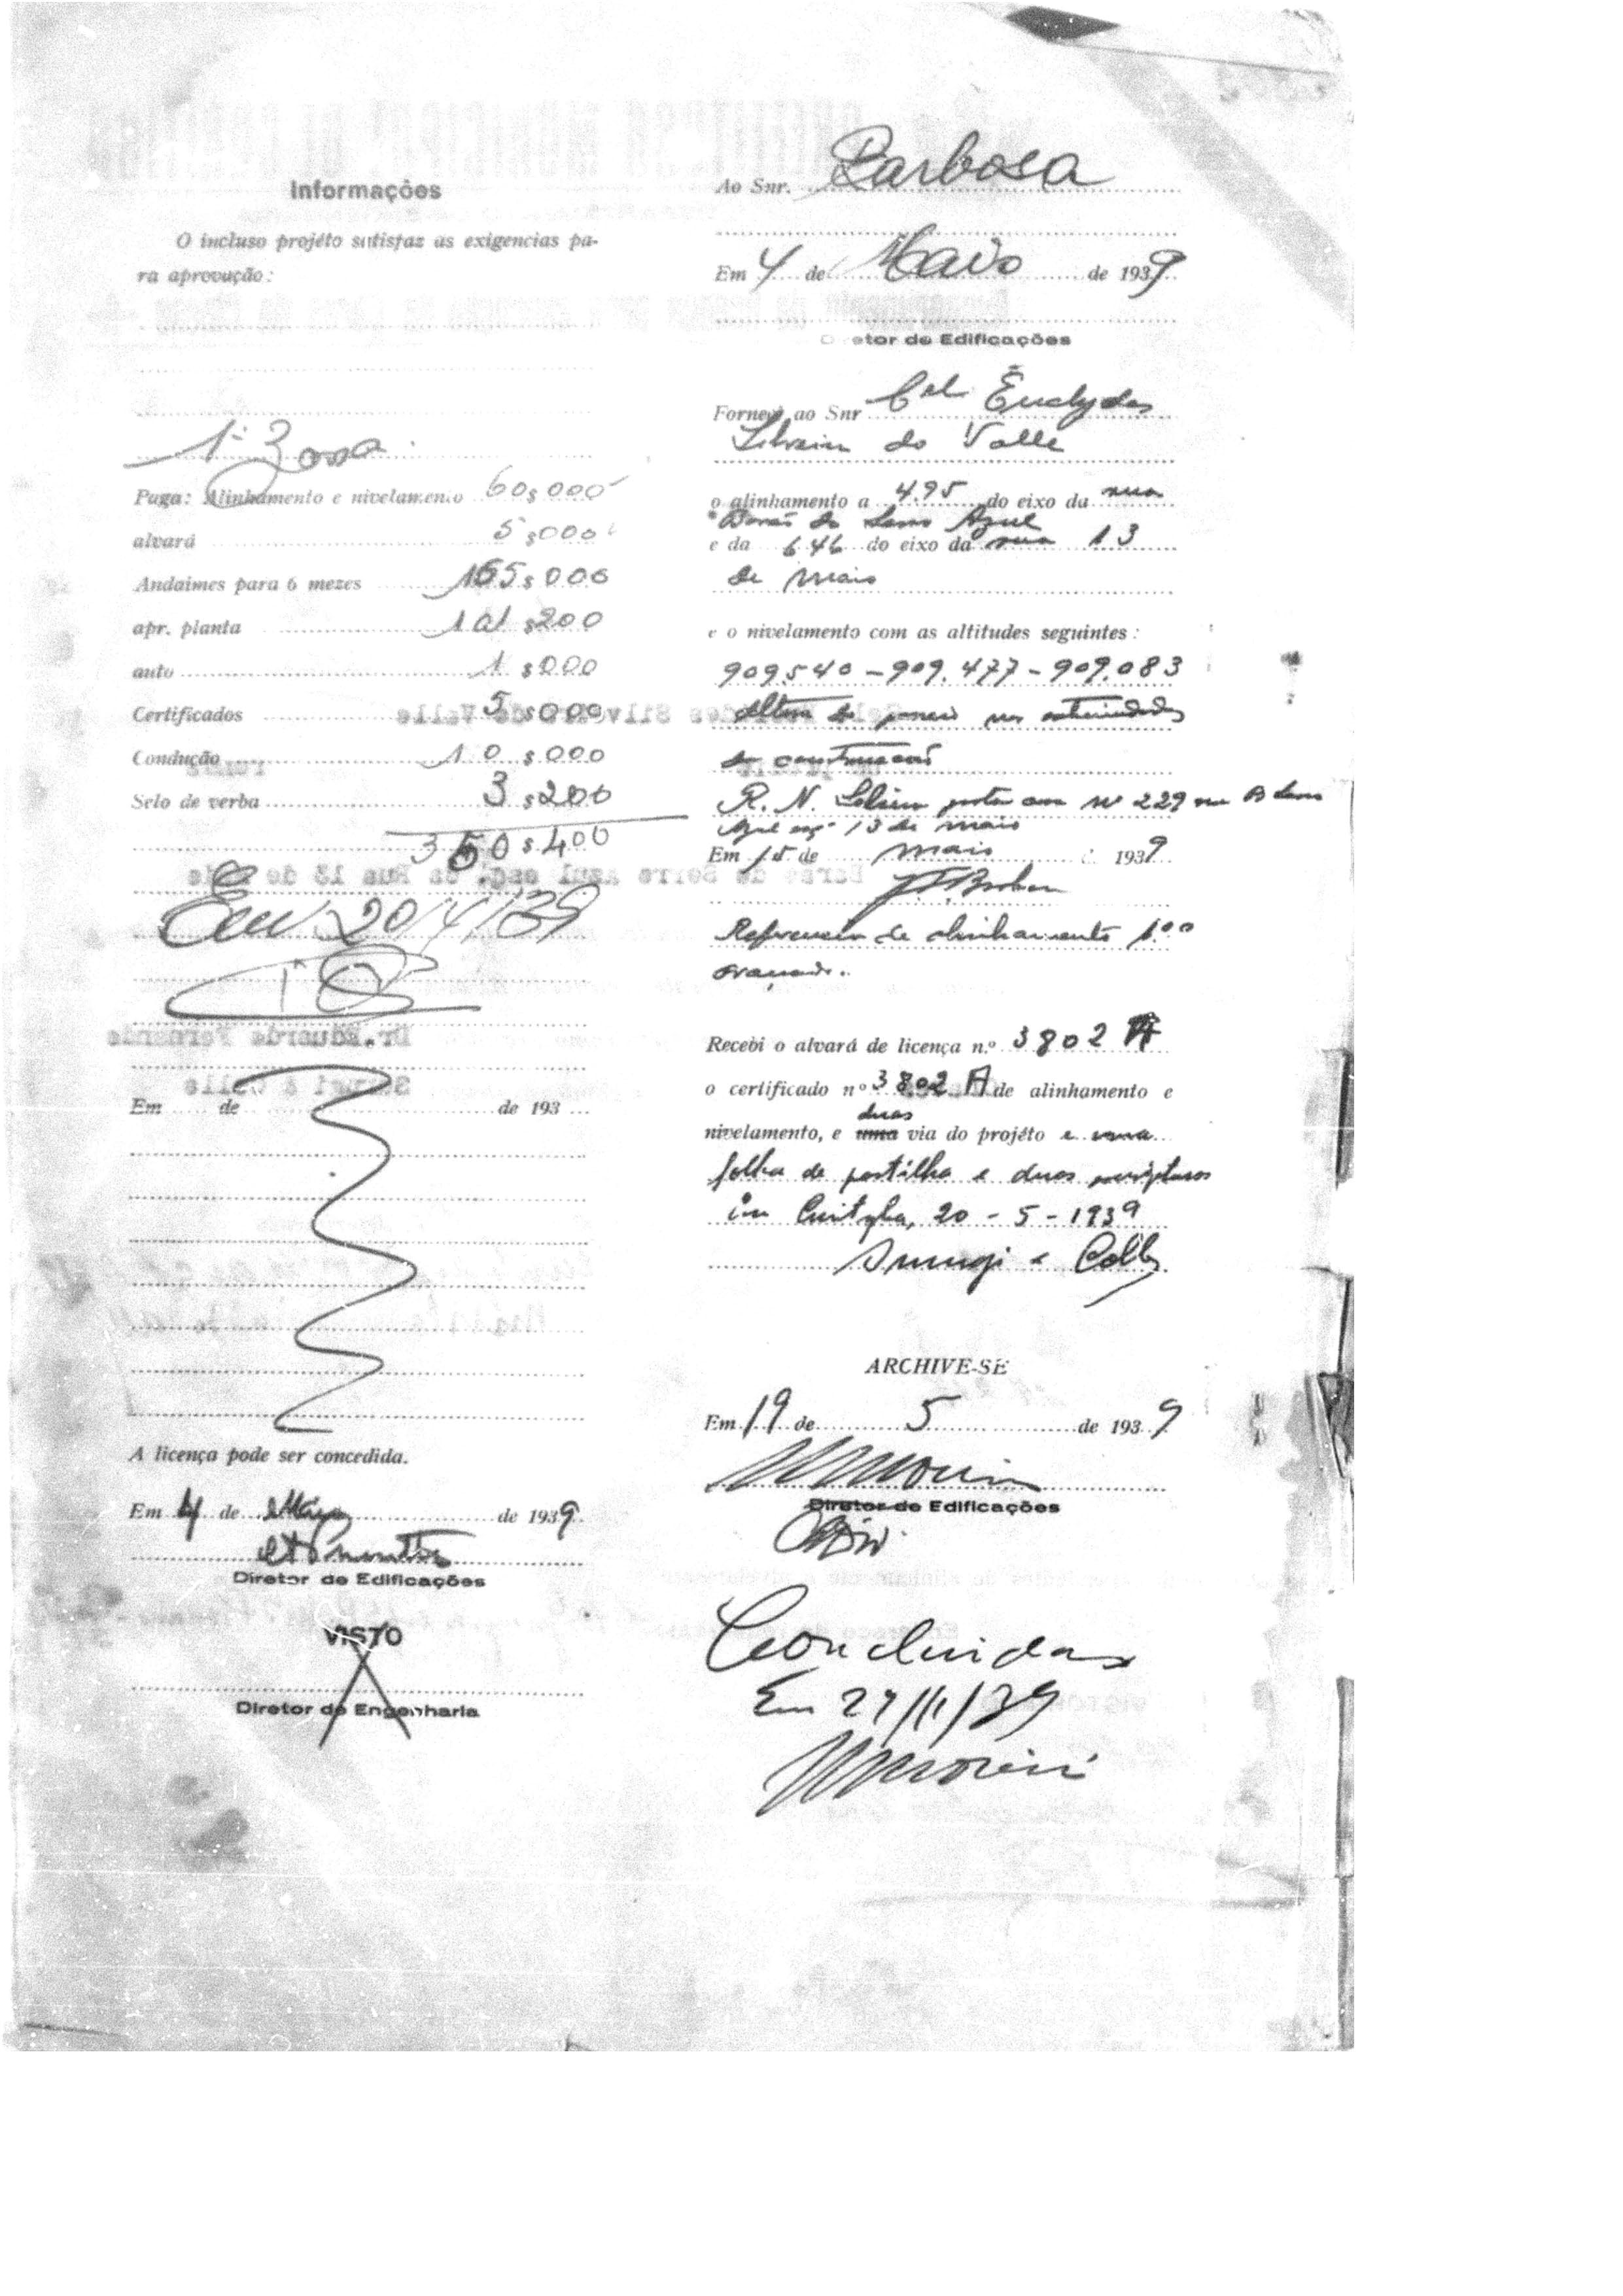 Informações
O incluso projéto satisfaz as exigencias pa-
ra aprovação:
1ª Zona
Paga: Alinhamento e nivelamento 60$000
alvará 5$000
Andaimes para 6 mezes 165$000
apr. planta 101$200
auto 1$000
Certificados 5$000
Condução 10$000
Selo de verba 3$200
350$400
Em 20/4/39
Em de de 193
A licença pode ser concedida.
Em 4 de Maio de 1939
Diretor de Edificações
VISTO
Diretor de Engenharia
Ao Snr. Barbosa
Em 4 de Maio de 1939
Diretor de Edificações
Forneci ao Snr Cel Euclydes
Silveira do Valle
o alinhamento a 4.95 do eixo da rua
Barão do Serro Azul
e da 6 46 do eixo da rua 13
de maio
e o nivelamento com as altitudes seguintes:
909.540 - 909.477 - 909.083
altura do passeio nas extremidades
da construcção
R. N. Soleira porta casa nº 229 rua B Serro
Azul esqª 13 de maio
Em 15 de maio 1939
Referencia de alinhamento 1.00
avançado.
Recebi o alvará de licença n.º 3802 A
o certificado nº 3802 A de alinhamento e
duas
nivelamento, e uma via do projéto e uma
folha de partilha e duas
Curityba, 20 - 5 - 1939
ARCHIVE-SE
Em 19 de 5 de 1939
Diretor de Edificações
Concluidas
Em 27/11/39